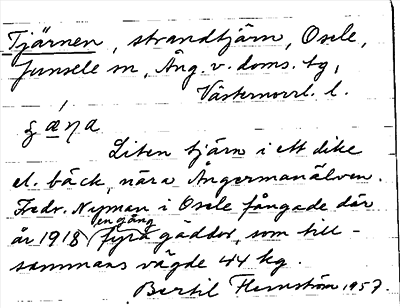 Tjärnen, strandtjärn, Osele,
Junsele sn, Ång. v. doms. tg,
Västernorrl. l.
Liten tjärn i ett dike
el. bäck, nära Ångermanälven.
Fredr. Nyman i Osele fångade där
år 1918 en gång fyra gäddor, som till-
sammans vägde 44 kg.
Bertil Flemström 1957.